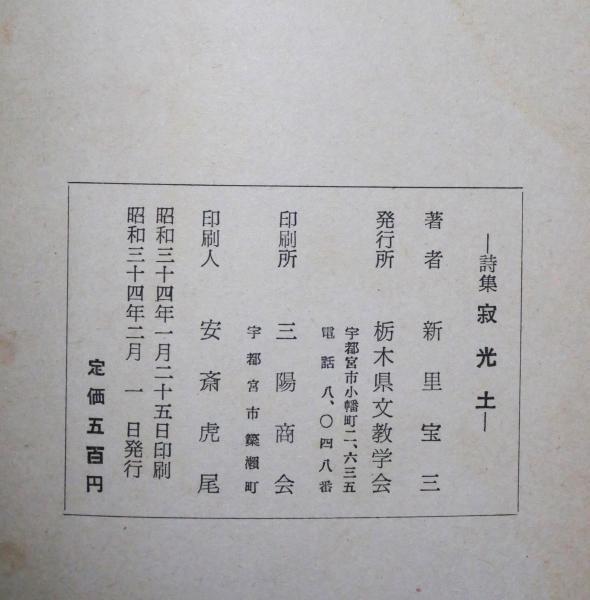 ―詩集 寂光土―
著者 新里宝三
発行所 栃木県文教学会
宇都宮市小幡町二、六三五
電話 八、〇四八番
印刷所 三陽商会
宇都宮市簗瀬町
印刷人 安斎虎尾
昭和三十四年一月二十五日印刷
昭和三十四年二月 一 日発行
定価五百円